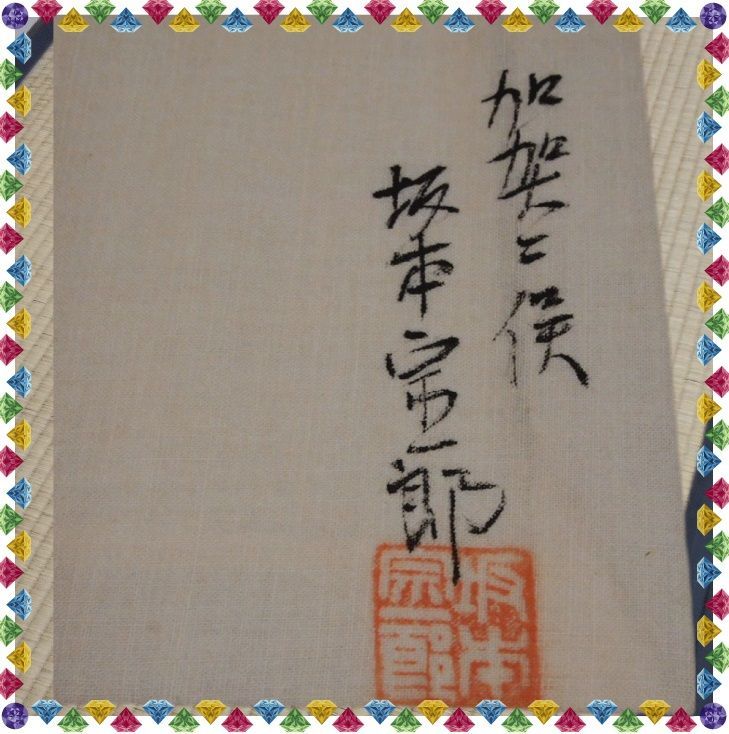 加賀二俣
坂本宗一郎
坂本
宗一郎